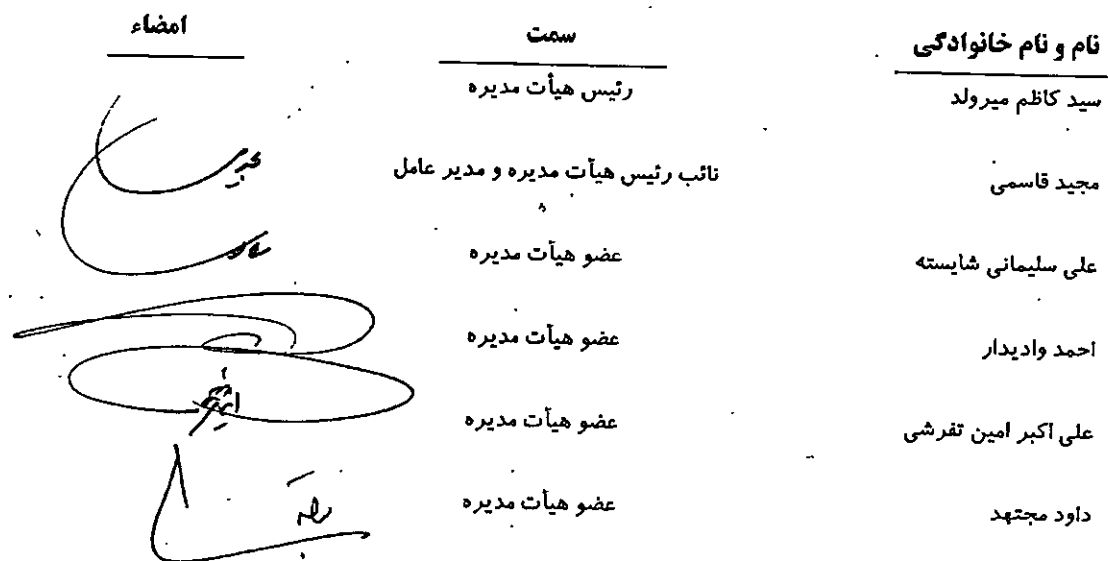 نام و نام خانوادگی سمت امضاء
سید کاظم میرولد رئیس هیأت مدیره
مجید قاسمی نائب رئیس هیأت مدیره و مدیر عامل
علی سلیمانی شایسته عضو هیأت مدیره
احمد وادیدار عضو هیأت مدیره
علی اکبر امین تفرشی عضو هیأت مدیره
داود مجتهد عضو هیأت مدیره